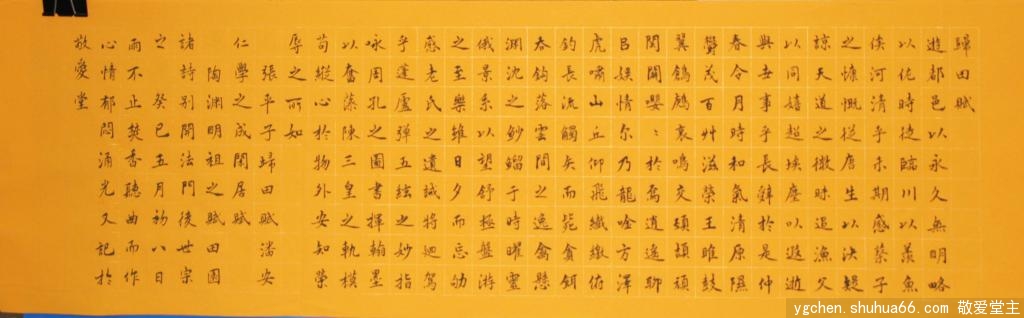 歸田賦
遊都邑以永久無明略
以佐時徒臨川以羨魚
俟河清乎未期感蔡子
之慷慨從唐生以決疑
諒天道之微昧追漁父
以同嬉超埃塵以遐逝
與世事乎長辭於是仲
春令月時和氣清原隰
鬱茂百艸滋榮王雎鼓
翼鶬鶊哀鳴交頸頡頏
關關嚶〻於焉逍遙聊
㠯娛情尔乃龍吟方澤
虎嘯山丘仰飛纖繳俯
釣長流觸矢而斃貪餌
吞鈎落雲間之逸禽懸
淵沈之魦鰡于時曜靈
俄景系以望舒極盤游
之至樂雖日夕而忘劬
感老氏之遺誡將迴駕
乎蓬廬彈五絃之妙指
詠周孔之圖書揮翰墨
以奮藻陳三皇之軌模
苟縱心於物外安知榮
辱之所如
張平子歸田賦潘安
仁學之成閑居賦
陶淵明祖之賦田園
諸詩別開法門後世宗
之癸巳五月初八日
雨不止焚香聽曲而作
心情郁悶涌光又記於
敬愛堂
ygchen.shuhua66.com 敬爱堂主